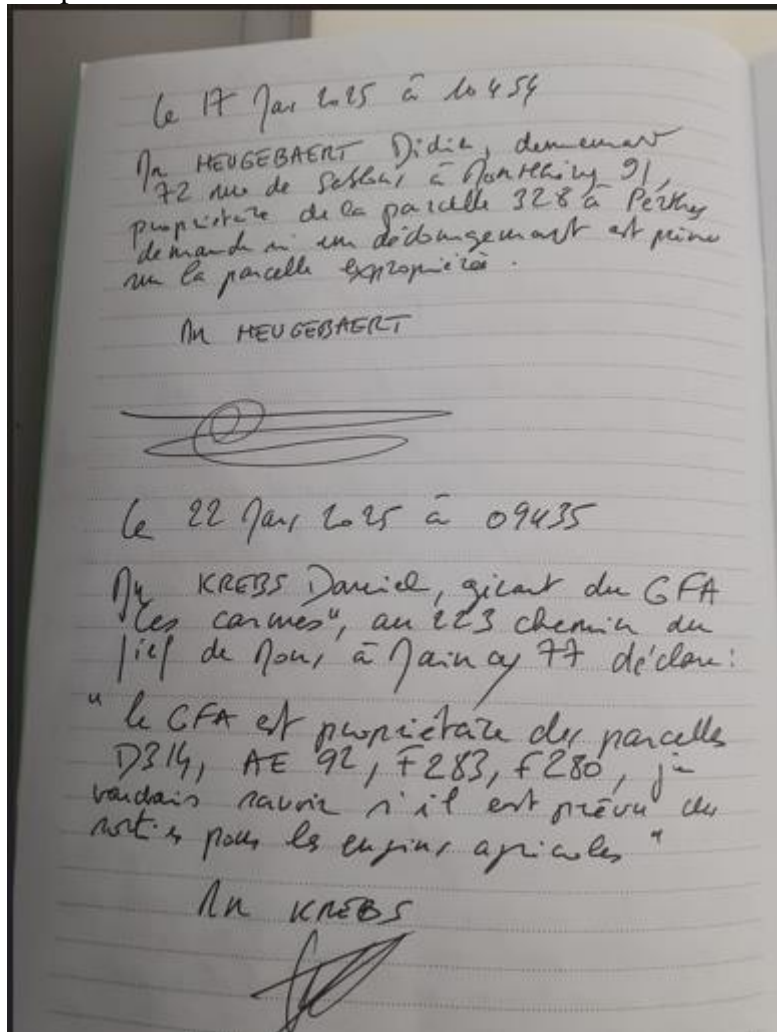 le 17 Mars 2025 à 10h54
Mr HEUGEBAERT Didier, demeurant
72 rue de à Montlhéry 91,
propriétaire de la parcelle 328 à Perthes
demande si un dédomagement est prévu
sur la parcelle expropriée.
Mr HEUGEBAERT
le 22 Mars 2025 à 09h35
Mr KREBS Daniel, gérant du GFA
"les carmes", au 223 chemin du
fief de Mons à Maincy 77 déclare:
"le GFA est propriétaire des parcelles
D314, AE 92, F283, F280, je
voudrais savoir s'il est prévu des
sorties pour les engins agricoles"
Mr KREBS